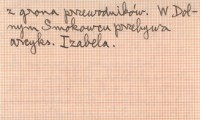 z grona przewodników. W Dol-
nym Smokowcu przebywa
arcyks. Izabela.